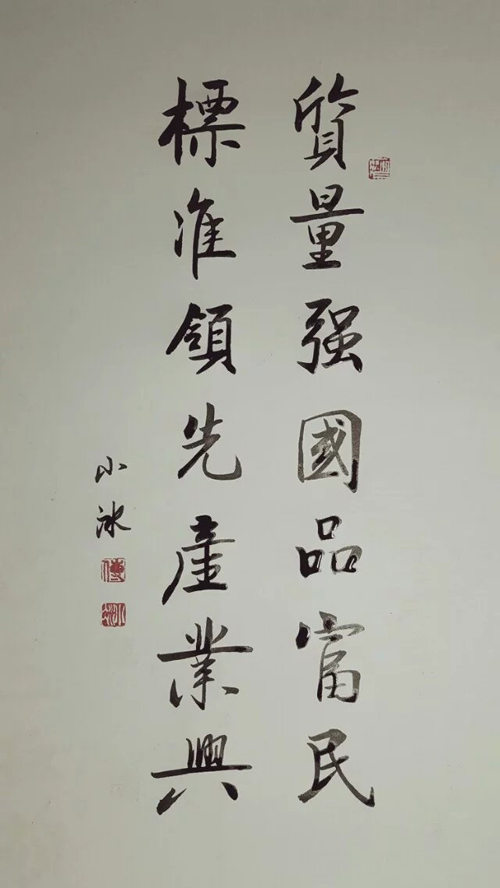 質量强國品富民
標准領先產業興
小冰
傅